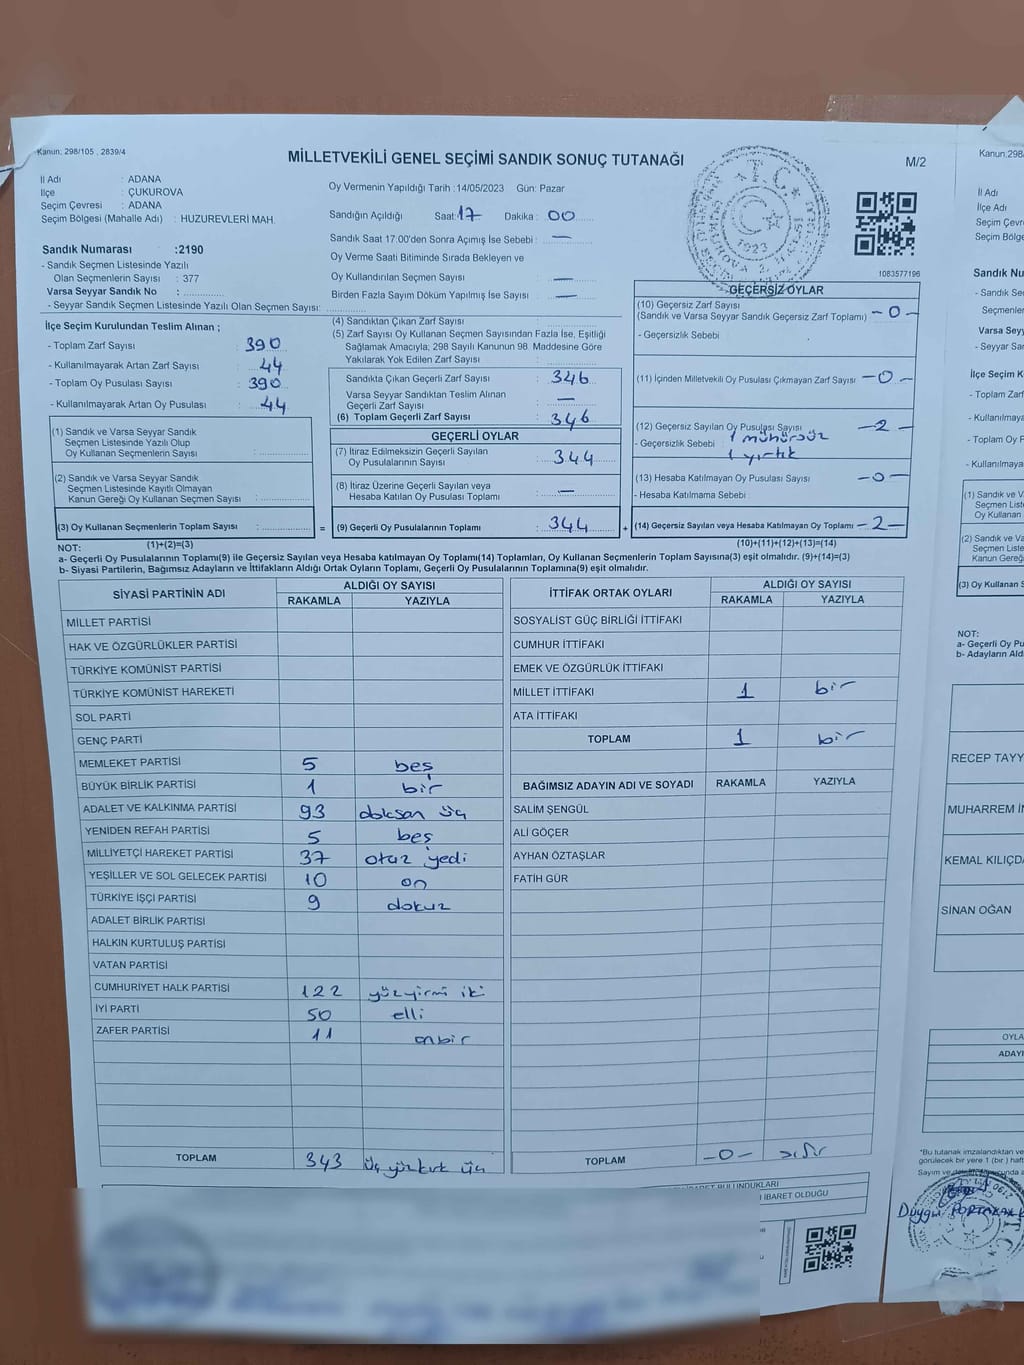 Kanun; 298/105 , 2839/4
MİLLETVEKİLİ GENEL SEÇİMİ SANDIK SONUÇ TUTANAĞI
M/2
İl Adı : ADANA
İlçe : ÇUKUROVA
Seçim Çevresi : ADANA
Seçim Bölgesi (Mahalle Adı) : HUZUREVLERİ MAH.
Sandık Numarası :2190
- Sandık Seçmen Listesinde Yazılı
Olan Seçmenlerin Sayısı : 377
Varsa Seyyar Sandık No :
- Seyyar Sandık Seçmen Listesinde Yazılı Olan Seçmen Sayısı:
Oy Vermenin Yapıldığı Tarih :14/05/2023 Gün: Pazar
Sandığın Açıldığı Saat: 17 Dakika : 00
Sandık Saat 17:00'den Sonra Açımış İse Sebebi : —
Oy Verme Saati Bitiminde Sırada Bekleyen ve
Oy Kullandırılan Seçmen Sayısı : —
Birden Fazla Sayım Döküm Yapılmış İse Sayısı : —
T.C.
1923
1083577196
İlçe Seçim Kurulundan Teslim Alınan ;
- Toplam Zarf Sayısı : 390
- Kullanılmayarak Artan Zarf Sayısı : 44
- Toplam Oy Pusulası Sayısı : 390
- Kullanılmayarak Artan Oy Pusulası : 44
(1) Sandık ve Varsa Seyyar Sandık
Seçmen Listesinde Yazılı Olup
Oy Kullanan Seçmenlerin Sayısı :
(2) Sandık ve Varsa Seyyar Sandık
Seçmen Listesinde Kayıtlı Olmayan
Kanun Gereği Oy Kullanan Seçmen Sayısı :
(3) Oy Kullanan Seçmenlerin Toplam Sayısı :
(1)+(2)=(3)
(4) Sandıktan Çıkan Zarf Sayısı :
(5) Zarf Sayısı Oy Kullanan Seçmen Sayısından Fazla İse, Eşitliği
Sağlamak Amacıyla; 298 Sayılı Kanunun 98. Maddesine Göre
Yakılarak Yok Edilen Zarf Sayısı :
Sandıkta Çıkan Geçerli Zarf Sayısı : 346
Varsa Seyyar Sandıktan Teslim Alınan
Geçerli Zarf Sayısı : —
(6) Toplam Geçerli Zarf Sayısı : 346
GEÇERLİ OYLAR
(7) İtiraz Edilmeksizin Geçerli Sayılan
Oy Pusulalarının Sayısı : 344
(8) İtiraz Üzerine Geçerli Sayılan veya
Hesaba Katılan Oy Pusulası Toplamı : —
= (9) Geçerli Oy Pusulalarının Toplamı : 344 +
GEÇERSİZ OYLAR
(10) Geçersiz Zarf Sayısı
(Sandık ve Varsa Seyyar Sandık Geçersiz Zarf Toplamı) - 0 -
- Geçersizlik Sebebi :
(11) İçinden Milletvekili Oy Pusulası Çıkmayan Zarf Sayısı - 0 -
(12) Geçersiz Sayılan Oy Pusulası Sayısı - 2 -
- Geçersizlik Sebebi : 1 mühürsüz
1 yırtık
(13) Hesaba Katılmayan Oy Pusulası Sayısı - 0 -
- Hesaba Katılmama Sebebi
(14) Geçersiz Sayılan veya Hesaba Katılmayan Oy Toplamı - 2 -
(10)+(11)+(12)+(13)=(14)
NOT:
a- Geçerli Oy Pusulalarının Toplamı(9) ile Geçersiz Sayılan veya Hesaba katılmayan Oy Toplamı(14) Toplamları, Oy Kullanan Seçmenlerin Toplam Sayısına(3) eşit olmalıdır. (9)+(14)=(3)
b- Siyasi Partilerin, Bağımsız Adayların ve İttifakların Aldığı Ortak Oyların Toplamı, Geçerli Oy Pusulalarının Toplamına(9) eşit olmalıdır.
SİYASİ PARTİNİN ADI ALDIĞI OY SAYISI
RAKAMLA YAZIYLA
MİLLET PARTİSİ
HAK VE ÖZGÜRLÜKLER PARTİSİ
TÜRKİYE KOMÜNİST PARTİSİ
TÜRKİYE KOMÜNİST HAREKETİ
SOL PARTİ
GENÇ PARTİ
MEMLEKET PARTİSİ 5 beş
BÜYÜK BİRLİK PARTİSİ 1 bir
ADALET VE KALKINMA PARTİSİ 93 doksan üç
YENİDEN REFAH PARTİSİ 5 beş
MİLLİYETÇİ HAREKET PARTİSİ 37 otuz yedi
YEŞİLLER VE SOL GELECEK PARTİSİ 10 on
TÜRKİYE İŞÇİ PARTİSİ 9 dokuz
ADALET BİRLİK PARTİSİ
HALKIN KURTULUŞ PARTİSİ
VATAN PARTİSİ
CUMHURİYET HALK PARTİSİ 122 yüzyirmi iki
İYİ PARTİ 50 elli
ZAFER PARTİSİ 11 onbir
TOPLAM 343 üç yüzkırk üç
İTTİFAK ORTAK OYLARI ALDIĞI OY SAYISI
RAKAMLA YAZIYLA
SOSYALİST GÜÇ BİRLİĞİ İTTİFAKI
CUMHUR İTTİFAKI
EMEK VE ÖZGÜRLÜK İTTİFAKI
MİLLET İTTİFAKI 1 bir
ATA İTTİFAKI
TOPLAM 1 bir
BAĞIMSIZ ADAYIN ADI VE SOYADI RAKAMLA YAZIYLA
SALİM ŞENGÜL
ALİ GÖÇER
AYHAN ÖZTAŞLAR
FATİH GÜR
TOPLAM -0- sıfır
BULUNDUKLARI
İBARET OLDUĞU
Kanun;298
İl Adı
İlçe Adı
Seçim Çevre
Seçim Bölge
Sandık Nu
- Sandık Seç
Seçmenler
Varsa Seyy
- Seyyar San
İlçe Seçim K
- Toplam Zarf
- Kullanılmaya
- Toplam Oy P
- Kullanılmaya
(1) Sandık ve V
Seçmen Liste
Oy Kullanan
(2) Sandık ve Va
Seçmen Liste
Kanun Gereğ
(3) Oy Kullanan S
NOT:
a- Geçerli Oy Pu
b- Adayların Aldı
RECEP TAYY
MUHARREM İN
KEMAL KILIÇDA
SİNAN OĞAN
OYLA
ADAYI
*Bu tutanak imzalandıktan ve
görülecek bir yere 1 (bir) haft
Duygu